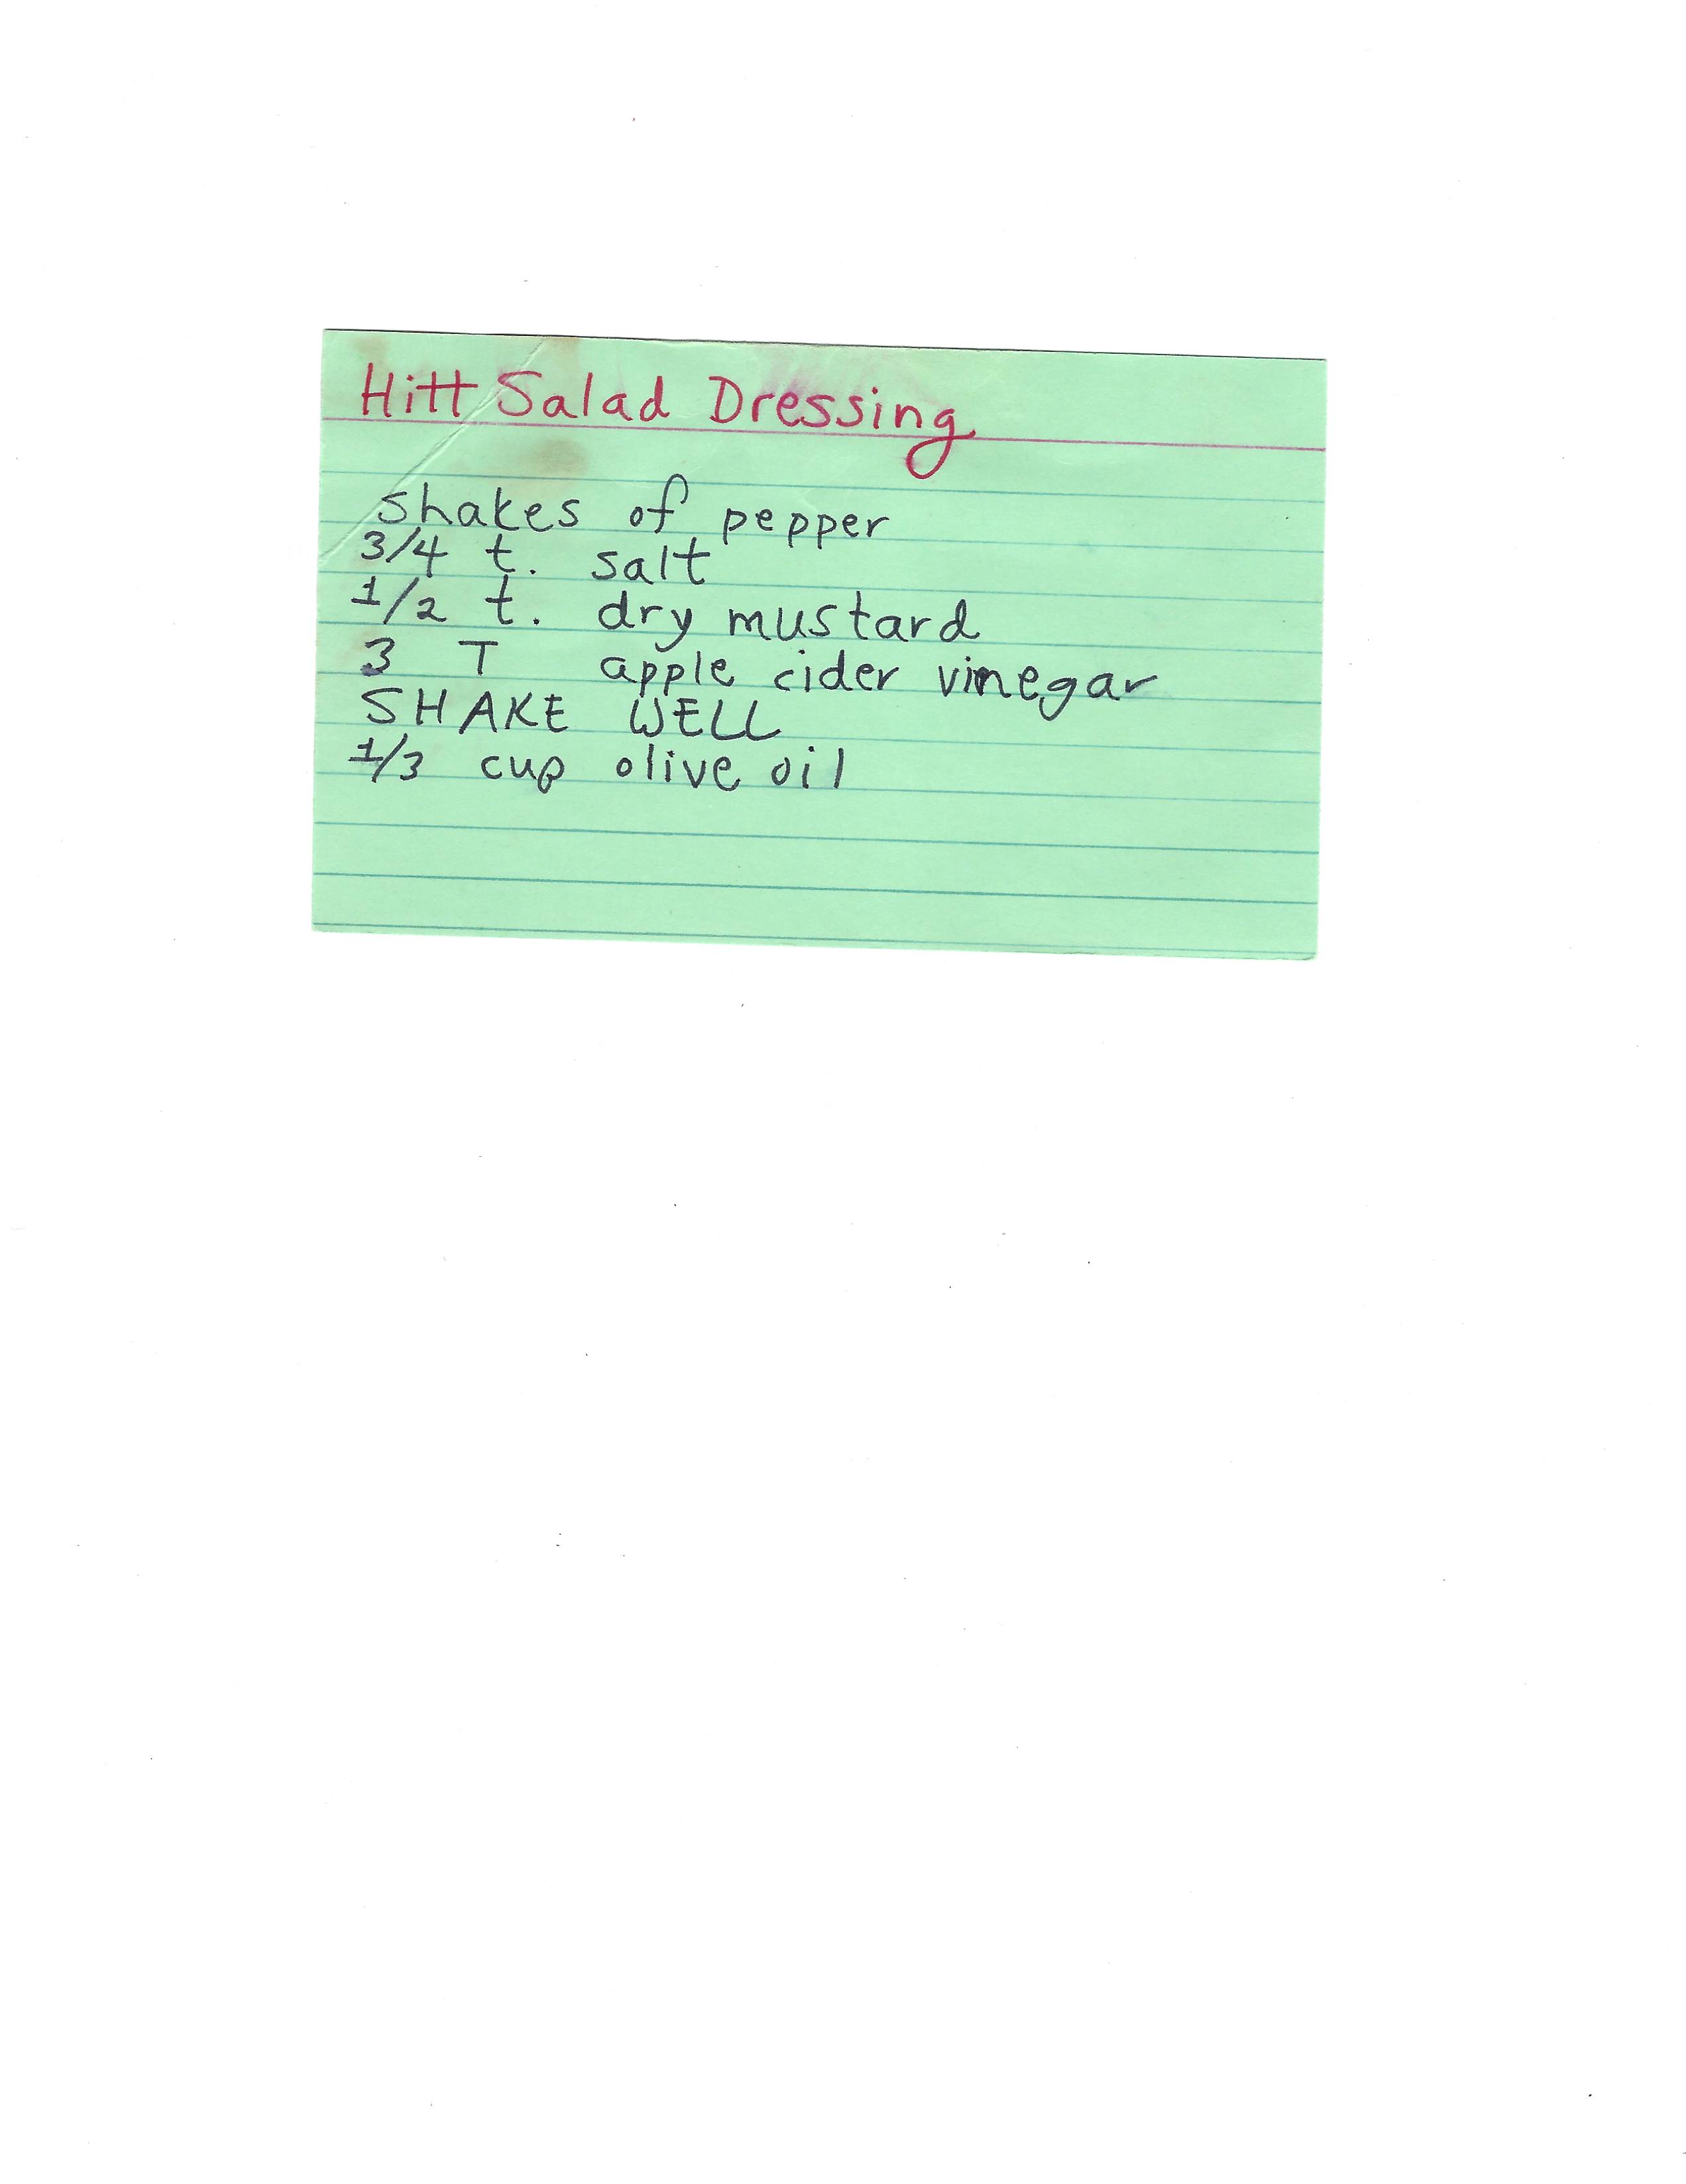 Hitt Salad Dressing
shakes of pepper
3/4 t. salt
1/2 t. dry mustard
3 T apple cider vinegar
SHAKE WELL
1/3 cup olive oil